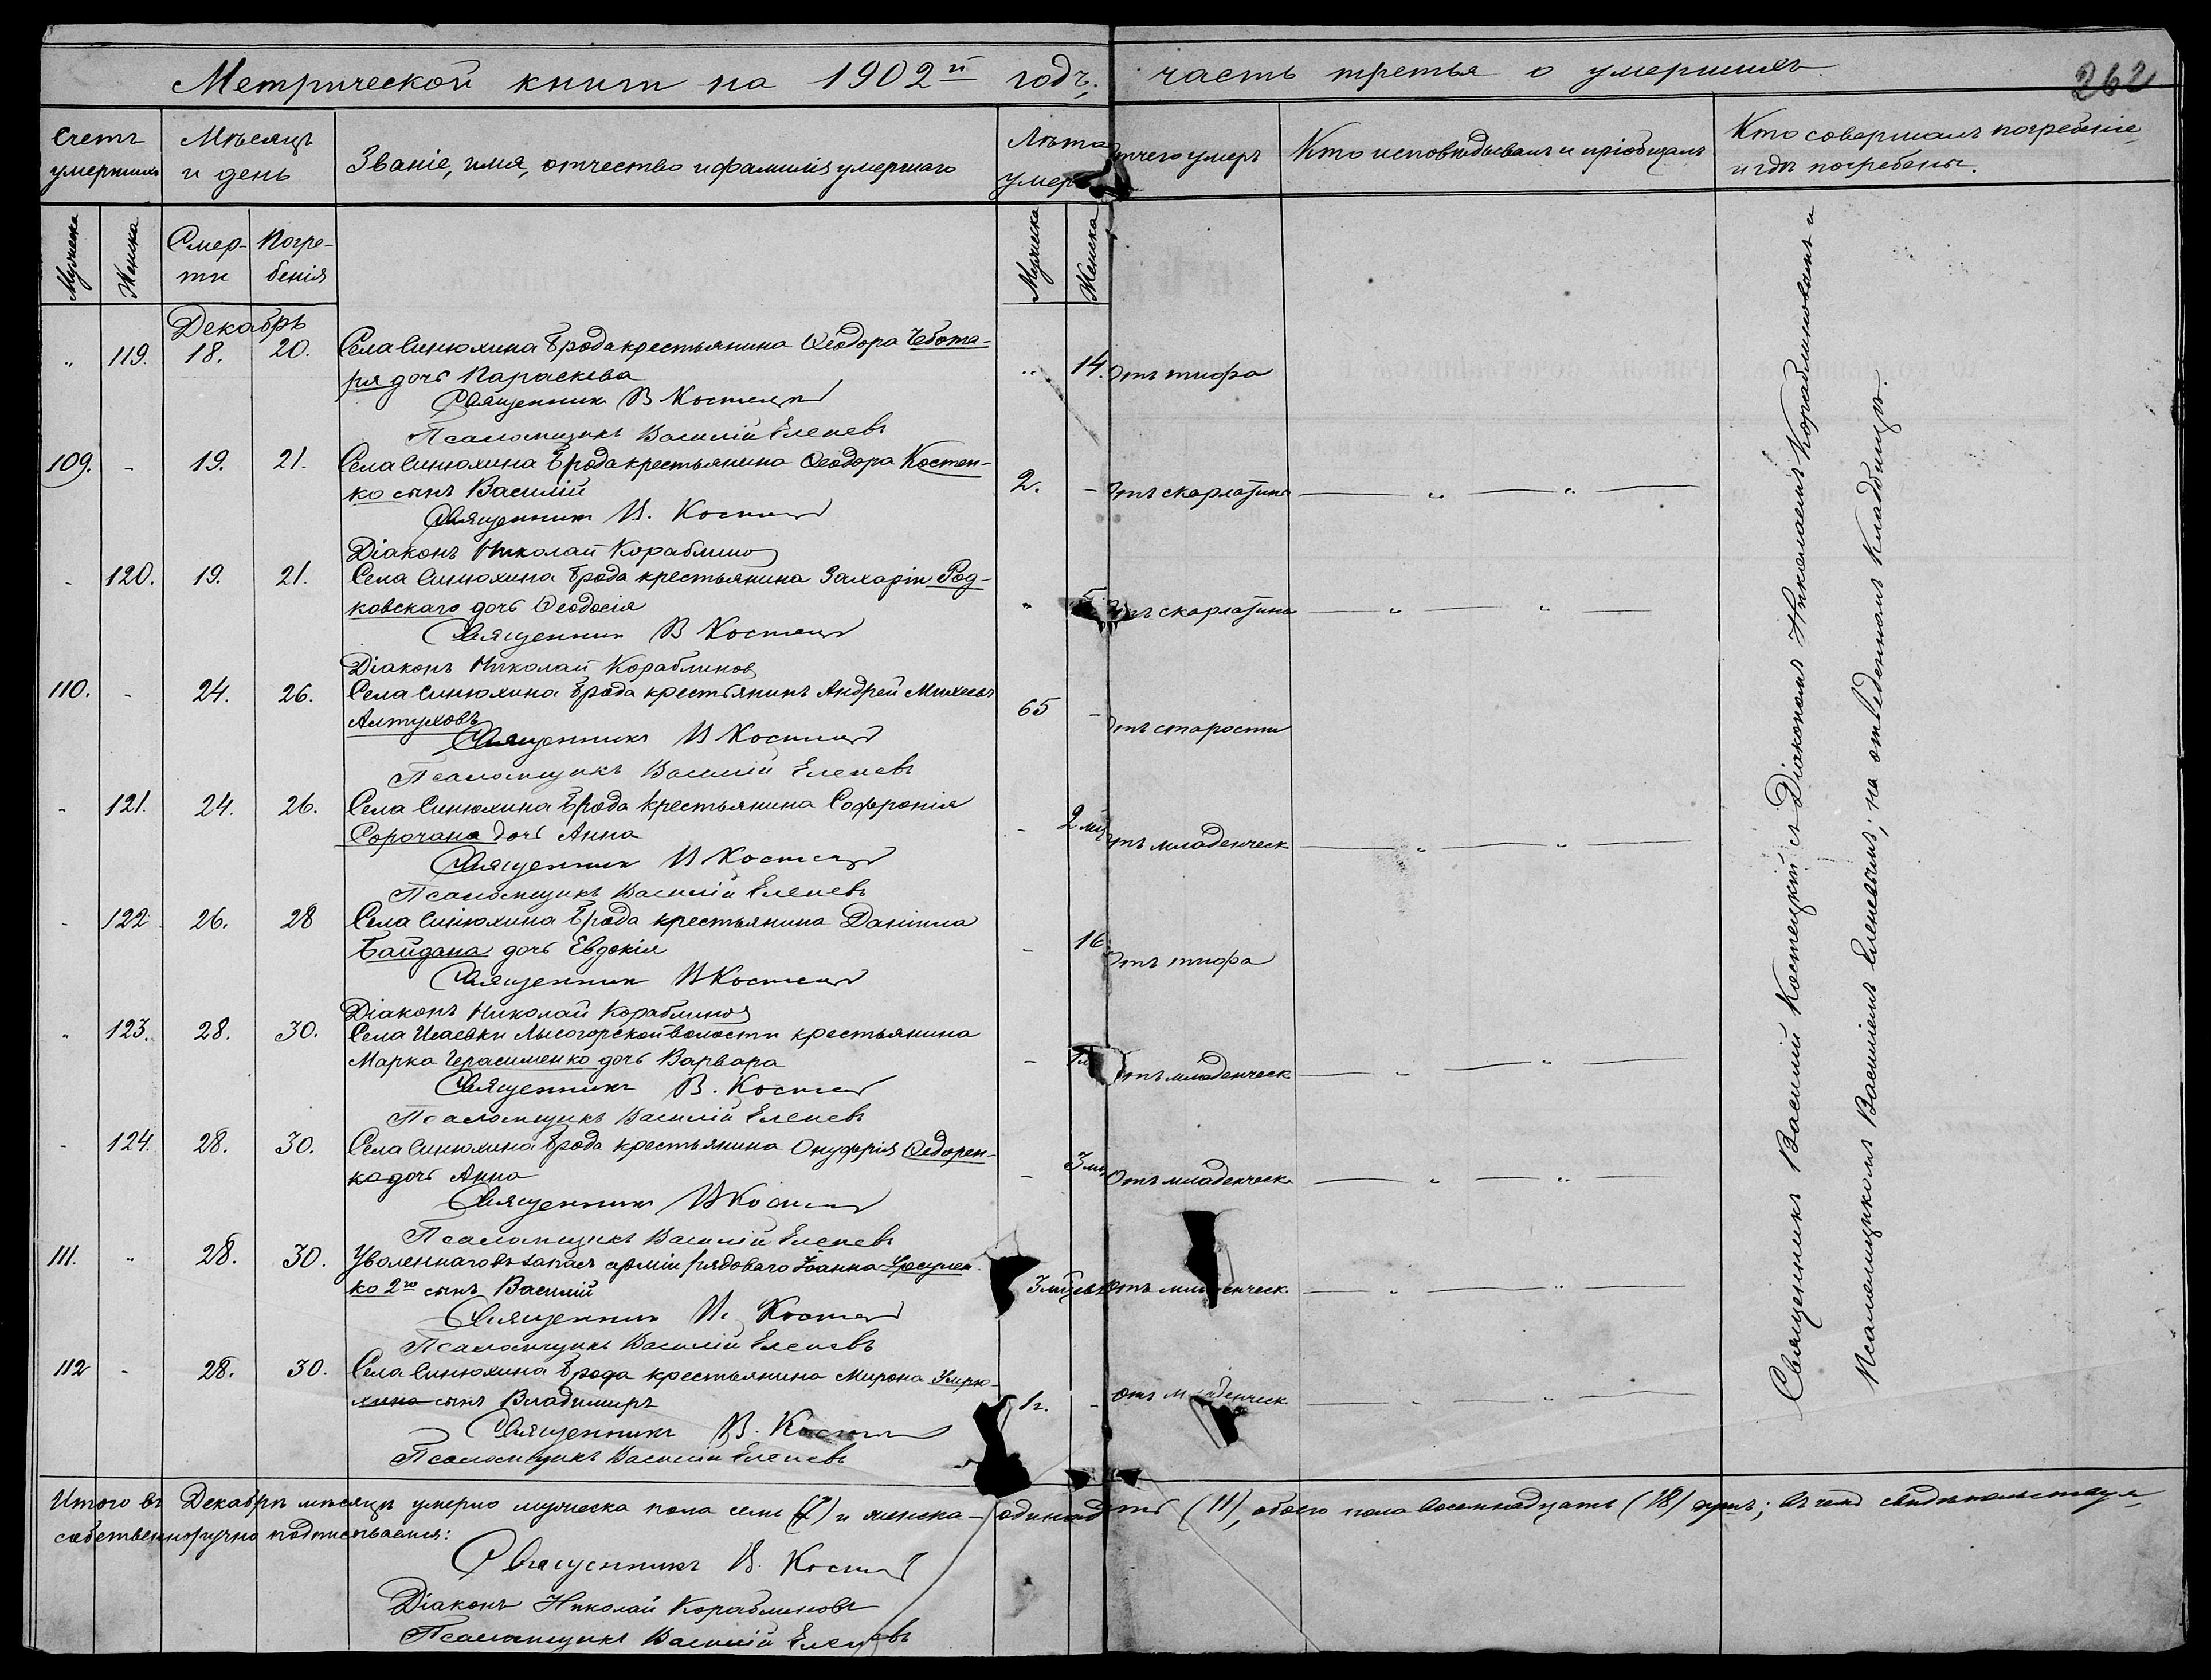 Метрической книги на 1902й годъ, часть третья о умершихъ
262
Счетъ умершихъ
Мѣсяцъ и день
Званіе, имя, отчество и фамилія умершаго
Лѣта умер
Отчего умеръ
Кто исповѣдывалъ и пріобщалъ
Кто совершалъ погребеніе и гдѣ погребены.
Мужеска
Женска
Смер-
ти
Погре-
бенія
Мужеска
Женска
Декабрь
„ 119. 18. 20. Села Синюхина Брода крестьянина Ѳеодора Чебота- „ 14. Отъ тифа
ря дочь Параскева
Священникъ В Костецкій
Псаломщикъ Василій Еленевъ
109. - 19. 21. Села Синюхина Брода крестьянина Ѳеодора Костен- 2. - Отъ скарлатины — „ — „ —
ко сынъ Василій
Священникъ В. Костецкій
Діаконъ Николай Кораблиновъ
- 120. 19. 21. Села Синюхина Брода крестьянина Захарія Род- „ Отъ скарлатины — „ — „ —
ковскаго дочь Ѳеодосія
Священникъ В Костецкій
Діаконъ Николай Кораблиновъ
110. - 24. 26. Села Синюхина Брода крестьянинъ Андрей Михеевъ 65 - Отъ старости
Алтуховъ
Священникъ В Костецкій
Псаломщикъ Василій Еленевъ
- 121. 24. 26. Села Синюхина Брода крестьянина Софронія - 2 мц Отъ младенческ — „ — „ —
Сорочана дочь Анна
Священникъ В Костецкій
Псаломщикъ Василій Еленевъ
- 122 26. 28 Села Синюхина Брода крестьянина Даніила - 16 Отъ тифа
Байдана дочь Евдокія
Священникъ В Костецкій
Діаконъ Николай Кораблиновъ
„ 123. 28. 30. Села Исаевки Лысогорской волости крестьянина - Отъ младенческ — „ — „ —
Марка Герасименко дочь Варвара
Священникъ В. Костецкій
Псаломщикъ Василій Еленевъ
- 124. 28. 30. Села Синюхина Брода крестьянина Онуфрія Ѳедорен- - 3 мц Отъ младенческ — „ — „ —
ко дочь Анна
Священникъ В Костецкій
Псаломщикъ Василій Еленевъ
111. „ 28. 30. Уволеннаго въ запасъ арміи рядоваго Іоанна 3 мцевъ Отъ младенческ — „ — „ —
ко 2го сынъ Василій
Священникъ В. Костецкій
Псаломщикъ Василій Еленевъ
112 - 28. 30. Села Синюхина Брода крестьянина Мирона 1 г. - отъ младенческ — „ — „ —
сынъ Владимиръ
Священникъ В. Костецкій
Псаломщикъ Василій Еленевъ
Священникъ Василій Костецкій съ Діакономъ Николаемъ Кораблиновымъ и
Псаломщикомъ Василіемъ Еленевымъ, на отведенномъ кладбищѣ.
Итого въ Декабрѣ мѣсяцѣ умерло мужеска пола семь (7) и женска - одинадцать (11), обоего пола восемнадцать (18) душъ; въ чемъ свидѣтельствуя
собственноручно подписываемся:
Священникъ В. Костецкій
Діаконъ Николай Кораблиновъ
Псаломщикъ Василій Еленевъ